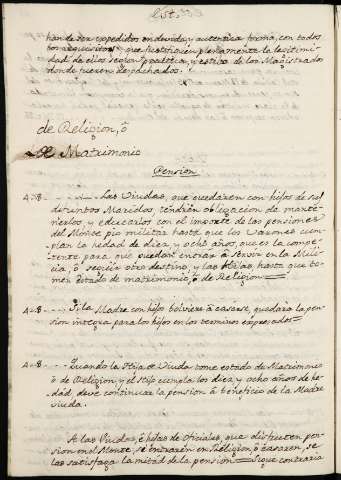 han de ser expedidos en devida, y autentica forma, con todos
los requisitos, que justifiquen plenamente la legitimi-
dad de ellos segun practica, y estilo de los Magistrados
donde fueren despachados.
de Religion, ó
de Matrimonio
Pension
Las Viudas, que quedaren con hijos de sus
difuntos Maridos, tendrán obligacion de mante-
nerlos, y educarlos con el importe de las pensiones
del Monte pio militar hasta que los Varones cum-
plan la hedad de diez, y ocho años, que es la compe-
tente para que puedan entrar à servir en la Mili-
cia, ó seguir otro destino, y las Hijas, hasta que to-
men estado de matrimonio, ó de Religion
Si la Madre con hijos bolviere à casarse, quedará la pen-
sion integra para los hijos en los terminos expresados
Quando la Hija de Viuda tome estado de Matrimonio
ó de Religion, y el Hijo cumpla los diez, y ocho años de he-
dad, deve continuar la pension à beneficio de la Madre
viuda.
A las Viudas, é hijas de Oficiales, que disfruten pen-
sion en el Monte, si entraren en Religion, ó casaren, se
las satisfaga la mitad de la pension